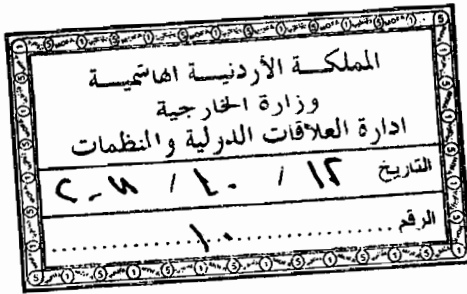 المملكــة الأردنيــة الهاشميــة
وزارة الخارجية
ادارة العلاقات الدولية والمنظمات
التاريخ ١٢ / ١٠ /
الرقم ١٠